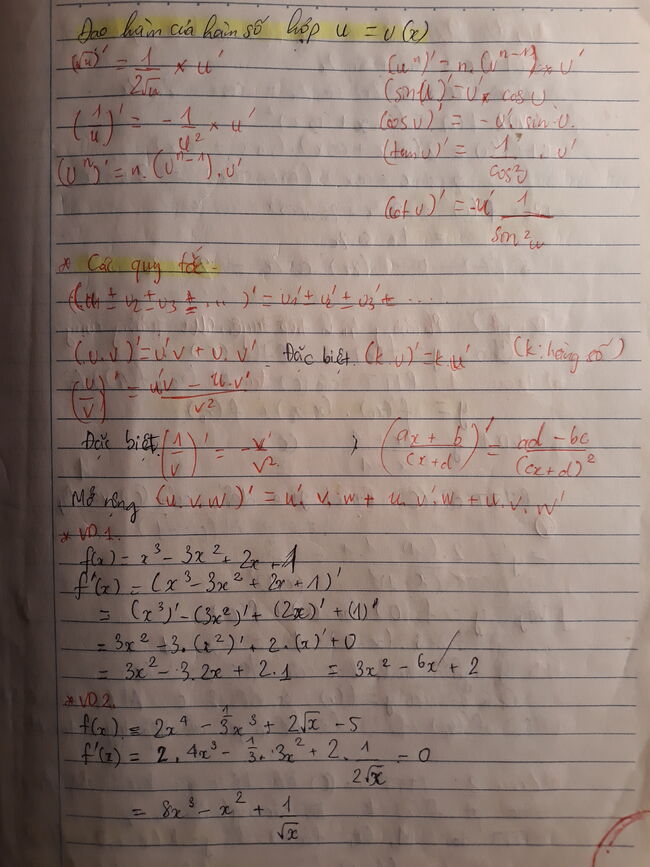 Đạo hàm của hàm số hợp u = u(x)
(√u)' = 1/(2√u) × u'
(1/u)' = - 1/u² × u'
(uⁿ)' = n.(uⁿ⁻¹).u'
(uⁿ)' = n.(uⁿ⁻¹) × u'
(sin u)' = u' × cos u
(cos u)' = - u' sin u.
(tan u)' = 1/cos²u . u'
(cot u)' = -u' 1/sin²u
* Các quy tắc
(u₁ ± u₂ ± u₃ ± ...)' = u₁' ± u₂' ± u₃' ± ...
(u.v)' = u'v + u.v' Đặc biệt (k.u)' = k.u' (k: hằng số)
(u/v)' = (u'v - u.v')/v²
Đặc biệt (1/v)' = -v'/v² , ((ax + b)/(cx + d))' = (ad - bc)/(cx + d)²
Mở rộng (u.v.w)' = u'.v.w + u.v'.w + u.v.w'
* VD.1.
f(x) = x³ - 3x² + 2x + 1
f'(x) = (x³ - 3x² + 2x + 1)'
= (x³)' - (3x²)' + (2x)' + (1)'
= 3x² - 3.(x²)' + 2.(x)' + 0
= 3x² - 3.2x + 2.1 = 3x² - 6x + 2
* VD2.
f(x) = 2x⁴ - 1/3x³ + 2√x - 5
f'(x) = 2.4x³ - 1/3.3x² + 2.1/(2√x) - 0
= 8x³ - x² + 1/√x